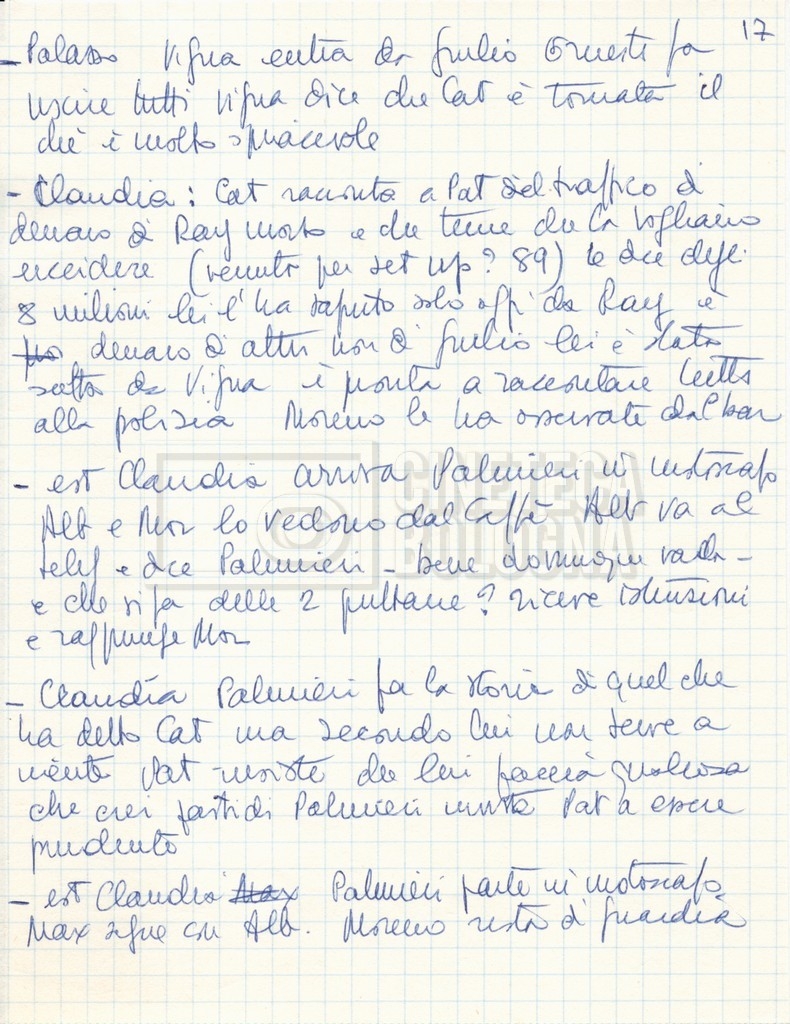 17
- Palazzo Vigna entra da Giulio Ernesti fa
uscire tutti Vigna dice che Cat è tornata il
che è molto spiacevole
- Claudia: Cat racconta a Pat del traffico di
denaro di Ray morto e che teme che la vogliano
uccidere (venuta per set up? 89) le dice degli
8 milioni lei l'ha saputo solo oggi da Ray è
denaro di altri non di Giulio lei è stata
scelta da Vigna è pronta a raccontare tutto
alla polizia Moreno le ha osservate dal bar
- est Claudia arriva Palmieri in motoscafo
Alb e Mor lo vedono dal Caffè Alb va al
telef e dice Palmieri - bene dovunque vada -
e che si fa delle 2 puttane? riceve istruzioni
e raggiunge Mor
- Claudia Palmieri fa la storia di quel che
ha detto Cat ma secondo lui non serve a
niente Pat insiste che lui faccia qualcosa
che crei fastidi Palmieri invita Pat a essere
prudente
- est Claudia Max Palmieri parte in motoscafo
Max segue con Alb. Moreno resta di guardia
CINETECA
BOLOGNA